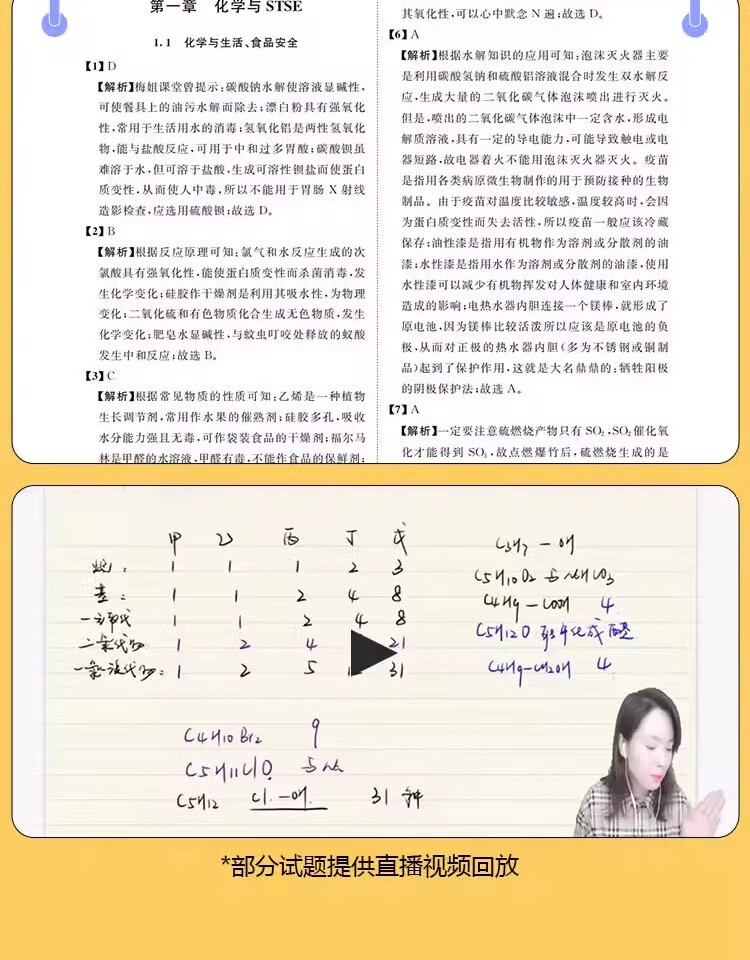 第一章 化学与STSE
1.1 化学与生活、食品安全
【1】D
【解析】梅姐课堂曾提示:碳酸钠水解使溶液显碱性,
可使餐具上的油污水解而除去;漂白粉具有强氧化
性,常用于生活用水的消毒;氢氧化铝是两性氢氧化
物,能与盐酸反应,可用于中和过多胃酸;碳酸钡虽
难溶于水,但可溶于盐酸,生成可溶性钡盐而使蛋白
质变性,从而使人中毒,所以不能用于胃肠X射线
造影检查,应选用硫酸钡;故选D。
【2】B
【解析】根据反应原理可知:氯气和水反应生成的次
氯酸具有强氧化性,能使蛋白质变性而杀菌消毒,发
生化学变化;硅胶作干燥剂是利用其吸水性,为物理
变化;二氧化硫和有色物质化合生成无色物质,发生
化学变化;肥皂水显碱性,与蚊虫叮咬处释放的蚁酸
发生中和反应;故选B。
【3】C
【解析】根据常见物质的性质可知:乙烯是一种植物
生长调节剂,常用作水果的催熟剂;硅胶多孔,吸收
水分能力强且无毒,可作袋装食品的干燥剂;福尔马
林是甲醛的水溶液,甲醛有毒,不能作食品的保鲜剂;
其氧化性,可以心中默念N遍;故选D。
【6】A
【解析】根据水解知识的应用可知:泡沫灭火器主要
是利用碳酸氢钠和硫酸铝溶液混合时发生双水解反
应,生成大量的二氧化碳气体泡沫喷出进行灭火。
但是,喷出的二氧化碳气体泡沫中一定含水,形成电
解质溶液,具有一定的导电能力,可能导致触电或电
器短路,故电器着火不能用泡沫灭火器灭火。疫苗
是指用各类病原微生物制作的用于预防接种的生物
制品。由于疫苗对温度比较敏感,温度较高时,会因
为蛋白质变性而失去活性,所以疫苗一般应该冷藏
保存;油性漆是指用有机物作为溶剂或分散剂的油
漆;水性漆是指用水作为溶剂或分散剂的油漆,使用
水性漆可以减少有机物挥发对人体健康和室内环境
造成的影响;电热水器内胆连接一个镁棒,就形成了
原电池,因为镁棒比较活泼所以应该是原电池的负
极,从而对正极的热水器内胆(多为不锈钢或铜制
品)起到了保护作用,这就是大名鼎鼎的:牺牲阳极
的阴极保护法;故选A。
【7】A
【解析】一定要注意硫燃烧产物只有SO₂,SO₂催化氧
化才能得到SO₃,故点燃爆竹后,硫燃烧生成的是
甲 乙 丙 丁 戊
烷: 1 1 1 2 3
基: 1 1 2 4 8
一卤代 1 1 2 4 8
二氯代物 1 2 4 21
一氯一溴代物: 1 2 5 1 31
C4H10Br2 9
C5H11ClO 与Na
C5H12 Cl. -OH. 31种
C3H7-OH
C5H10O2 与NaHCO3
C4H9-COOH 4
C5H12O 能氧化成醛
C4H9-CH2OH 4
*部分试题提供直播视频回放